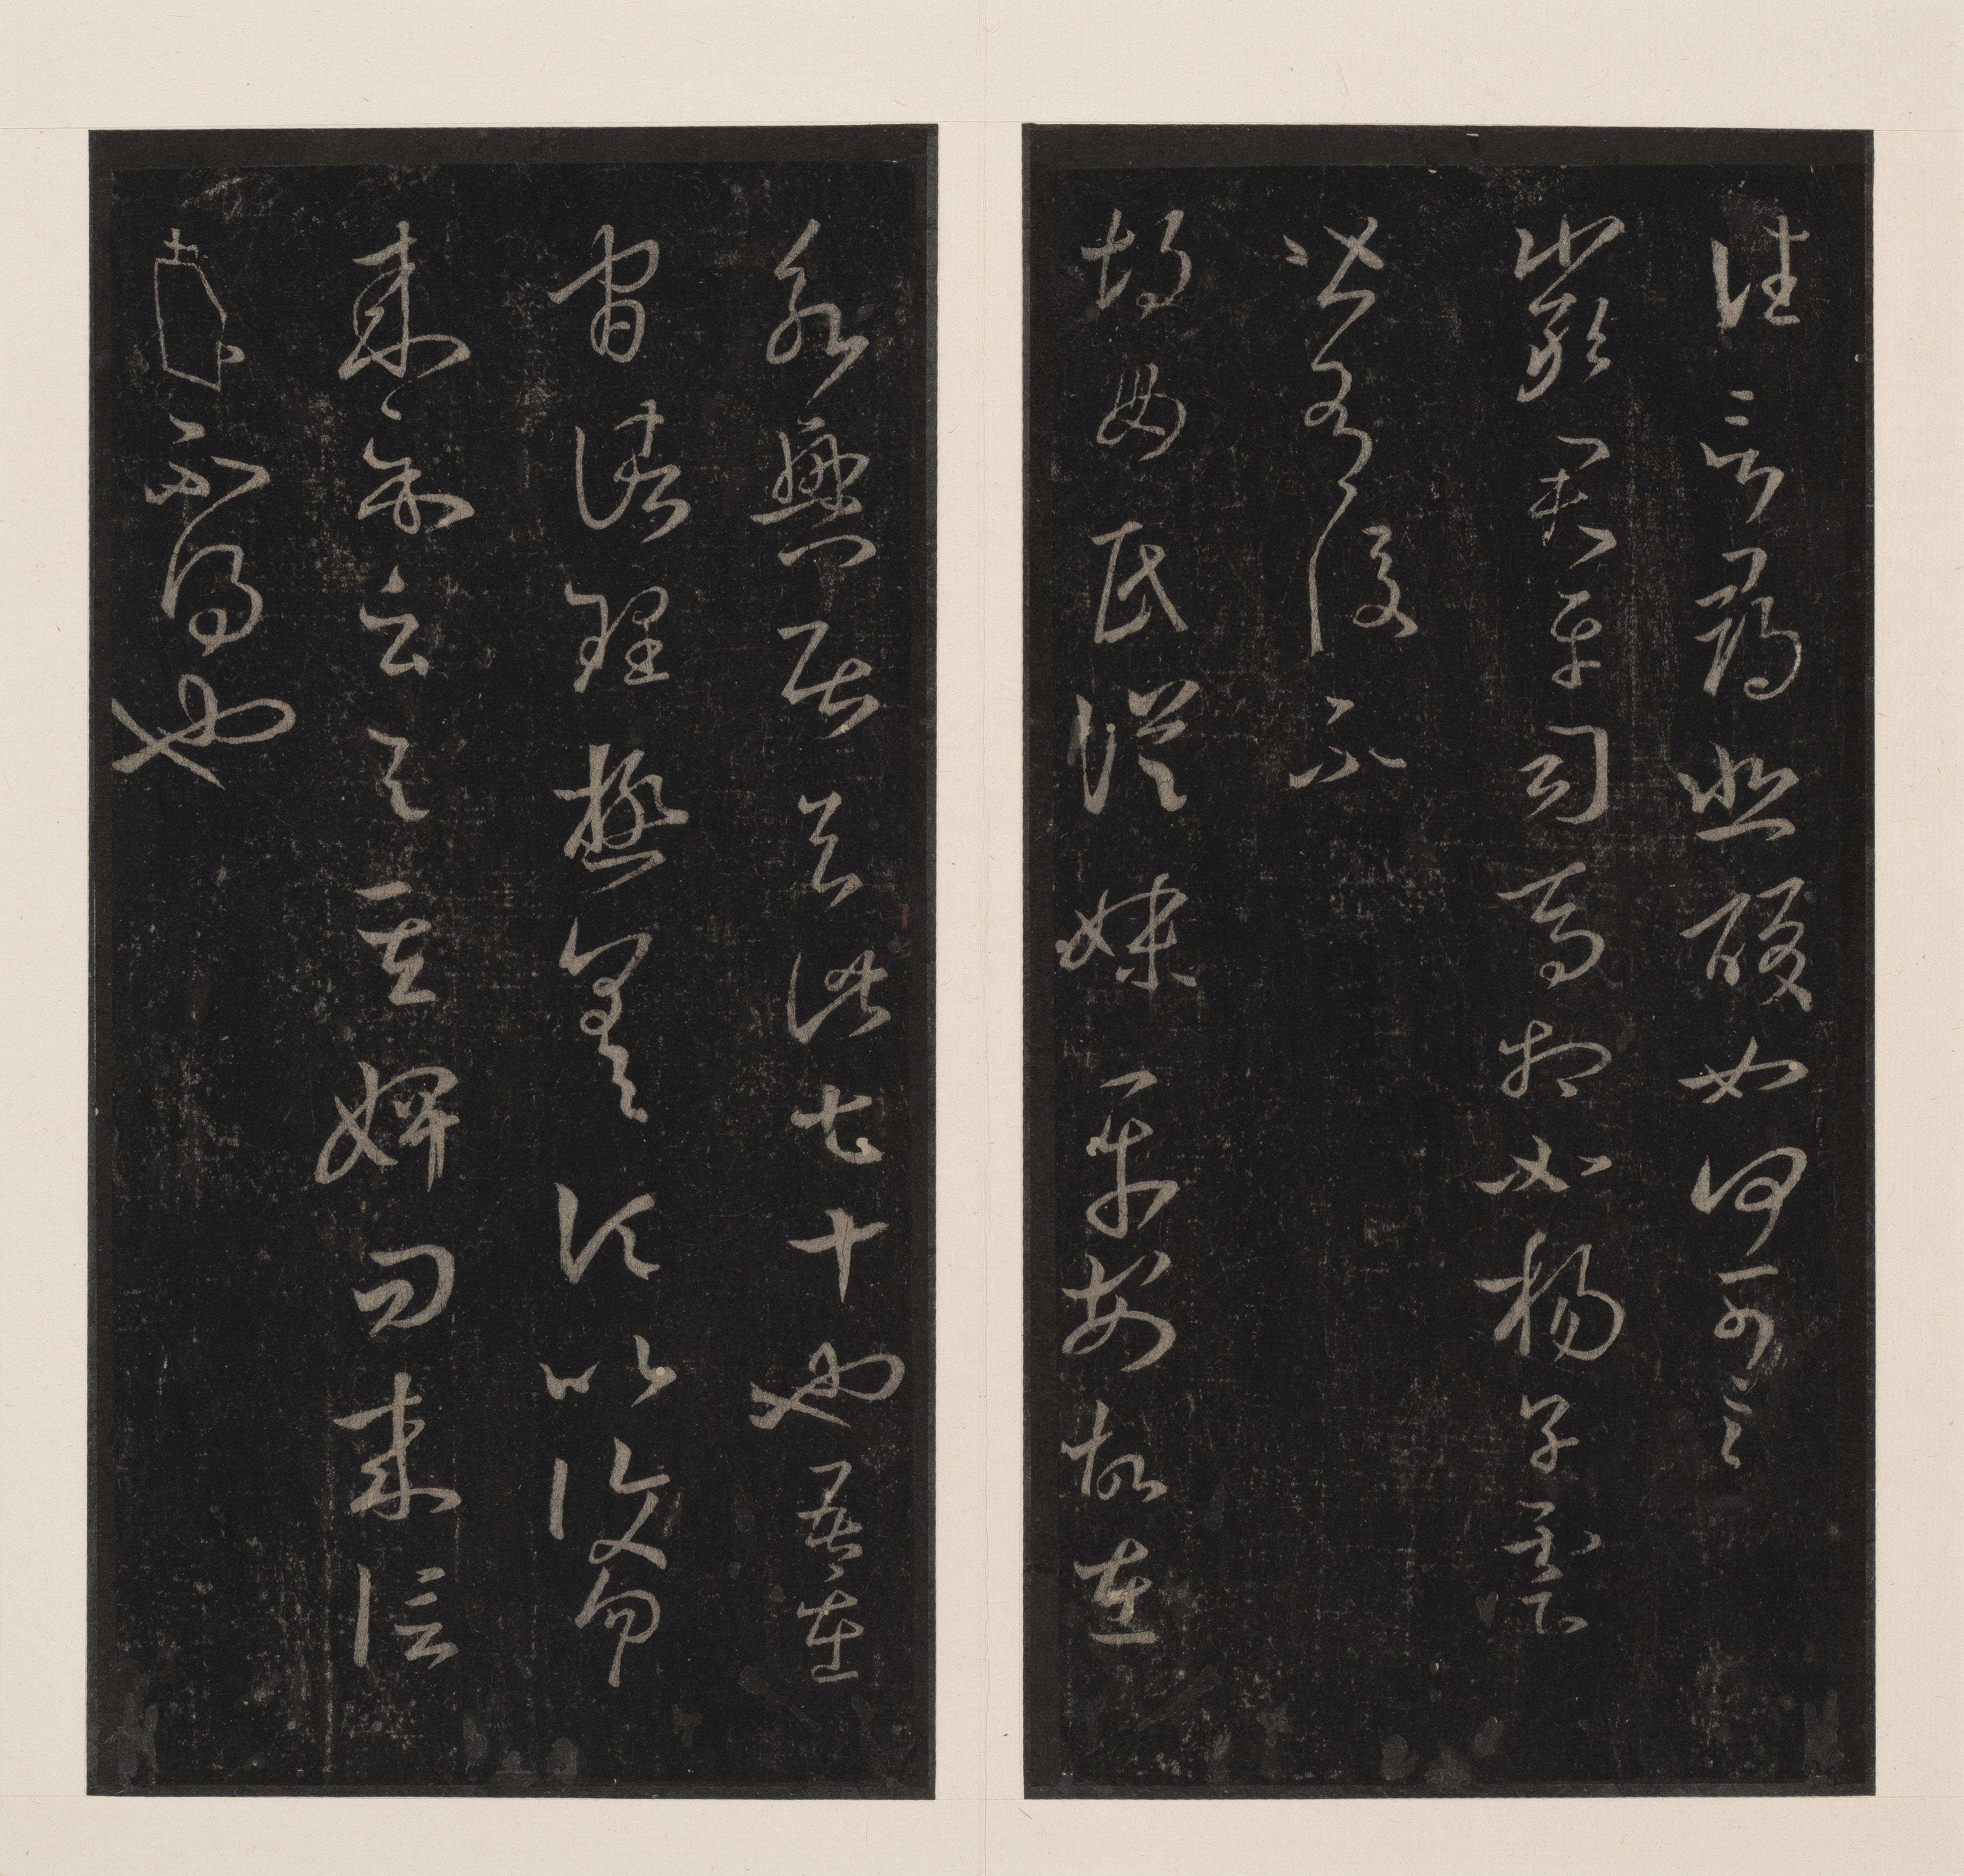 往言尋悲酸如何可言
嚴君平司馬相如楊子雲
皆有後不
胡母氏從妹平安故在
永興居去此七十也吾在
官諸理極差頃比復勿勿
來示云与其婢問來信
不得也